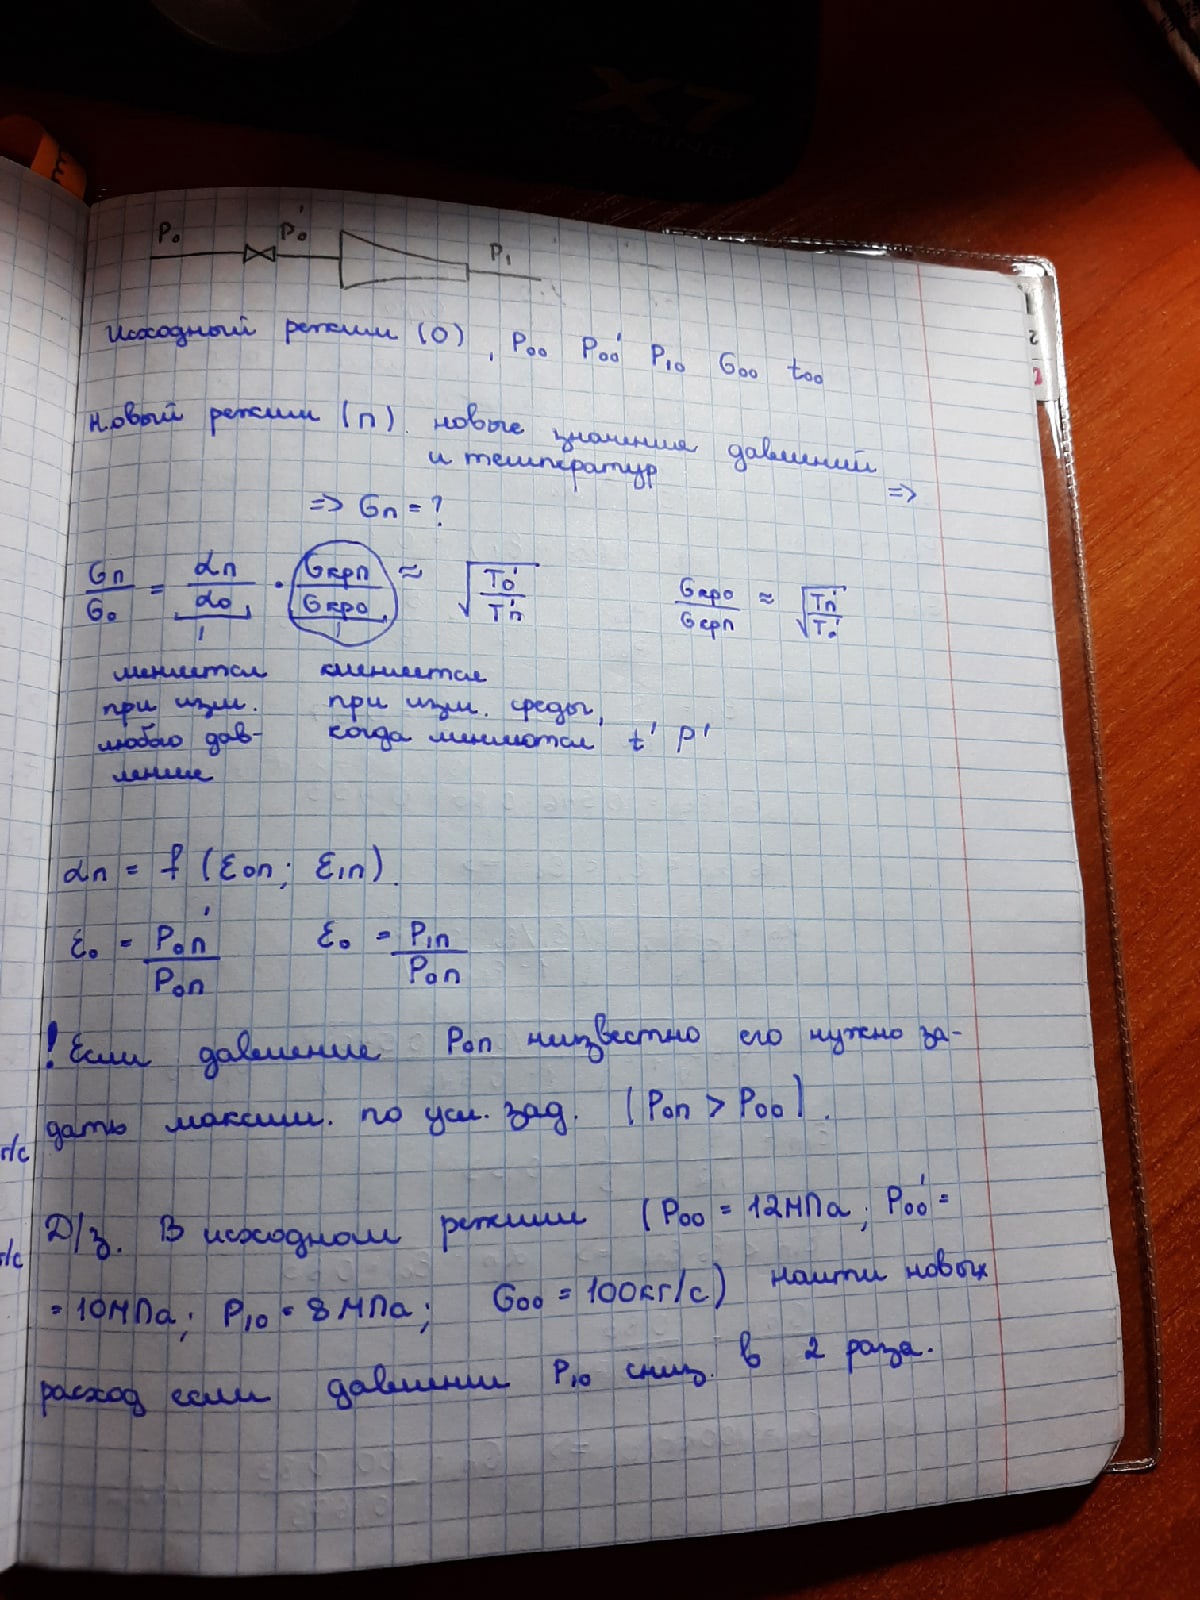 P₀ P₀' P₁
Исходный режим (0), P₀₀ P₀₀' P₁₀ G₀₀ t₀₀
Новый режим (п). новые значения давлений
и температур =>
=> Gп = ?
Gп/G₀ = αп/α₀ · Gкрп/Gкр0 ≈ √(T₀'/Tп') Gкр0/Gкрп ≈ √(Tп'/T₀')
меняется
при изм. при изм. среды,
любого дав- когда меняются t' P'
ление
αп = f (ε₀п; ε₁п).
ε₀ = P₀п'/P₀п ε₀ = P₁п/P₀п
! Если давление P₀п неизвестно его нужно за-
дать максим. по усл. зад. (P₀п > P₀₀).
г/с
Д/з. В исходном режиме (P₀₀ = 12 МПа; P₀₀' =
г/с
= 10 МПа; P₁₀ = 8 МПа; G₀₀ = 100 кг/с) найти новых
расход если давлении P₁₀ сниз. в 2 раза.